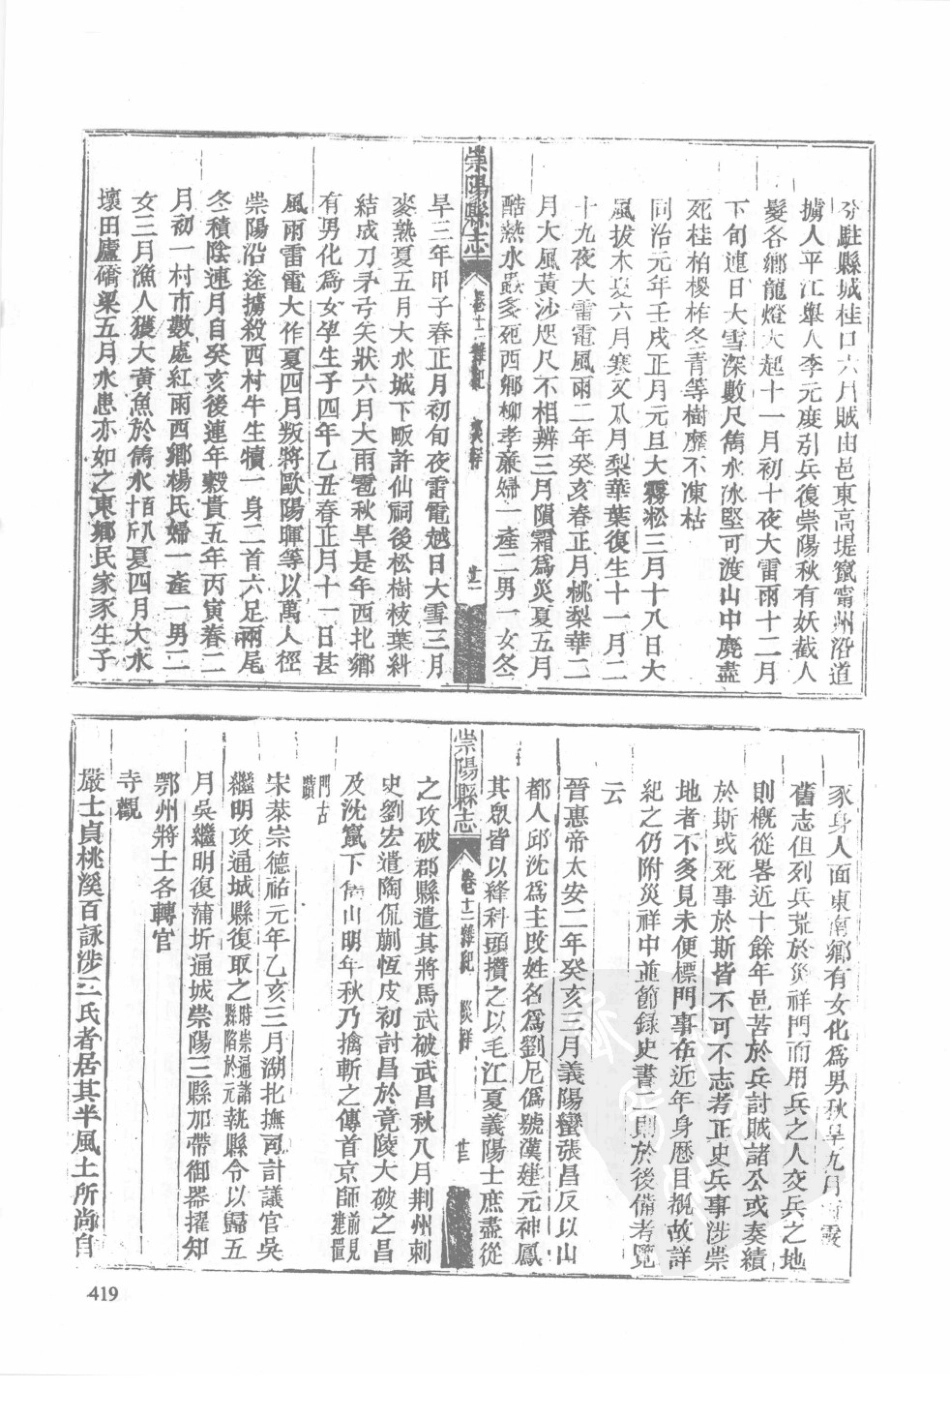 分駐縣城桂口六月賊由邑東高堤竄甯州沿道
擄人平江舉人李元度引兵復崇陽秋有妖截人
髮各鄉龍燈大起十一月初十夜大雷雨十二月
下旬連日大雪深數尺雋水冰堅可渡山中麂盡
死桂柏椶柞冬青等樹靡不凍枯
同治元年壬戌正月元旦大霧淞三月十八日大
風拔木夏六月寒又八月梨華葉復生十一月二
十九夜大雷電風雨二年癸亥春正月桃梨華二
月大風黃沙咫尺不相辨三月隕霜爲災夏五月
酷熱水蝨多死西鄉柳孝廉婦一產二男一女冬
崇陽縣志
卷十二 雜紀 災祥
旱三年甲子春正月初旬夜雷電越日大雪三月
麥熟夏五月大水城下畈許仙祠後松樹枝葉糾
結成刀矛弓矢狀六月大雨雹秋旱是年西北鄉
有男化爲女孕生子四年乙丑春正月十一日甚
風雨雷電大作夏四月叛將歐陽暉等以萬人徑
崇陽沿途擄殺西村牛生犢一身二首六足兩尾
冬積陰連月自癸亥後連年穀貴五年丙寅春二
月初一村市數處紅雨西鄉楊氏婦一產一男二
女三月漁人獲大黃魚於雋水百八十斤夏四月大水
壞田廬橋梁五月水患亦如之東鄉民家豕生子
豕身人面東南鄉有女化爲男秋旱九月
舊志但列兵荒於災祥門而用兵之人交兵之地
則概從畧近十餘年邑苦於兵討賊諸公或奏績
於斯或死事於斯皆不可不志者正史兵事涉崇
地者不多見未便標門事在近年身歷目覩故詳
紀之仍附災祥中並節錄史書二則於後備考覽
云
晉惠帝太安二年癸亥三月義陽蠻張昌反以山
都人邱沈爲主改姓名爲劉尼僞號漢建元神鳳
其眾皆以絳科頭攢之以毛江夏義陽士庶盡從
崇陽縣志
卷十二 雜紀 災祥
之攻破郡縣遣其將馬武破武昌秋八月荆州刺
史劉宏遣陶侃蒯恆皮初討昌於竟陵大破之昌
及沈竄下雋山明年秋乃擒斬之傳首京師前見建置
門古蹟
宋恭宗德祐元年乙亥三月湖北撫司計議官吳
繼明攻通城縣復取之時崇通諸縣陷於元執縣令以歸五
月吳繼明復蒲圻通城崇陽三縣加帶御器擢知
鄂州將士各轉官
寺觀
嚴士貞桃溪百詠涉二氏者居其半風土所尚自
419